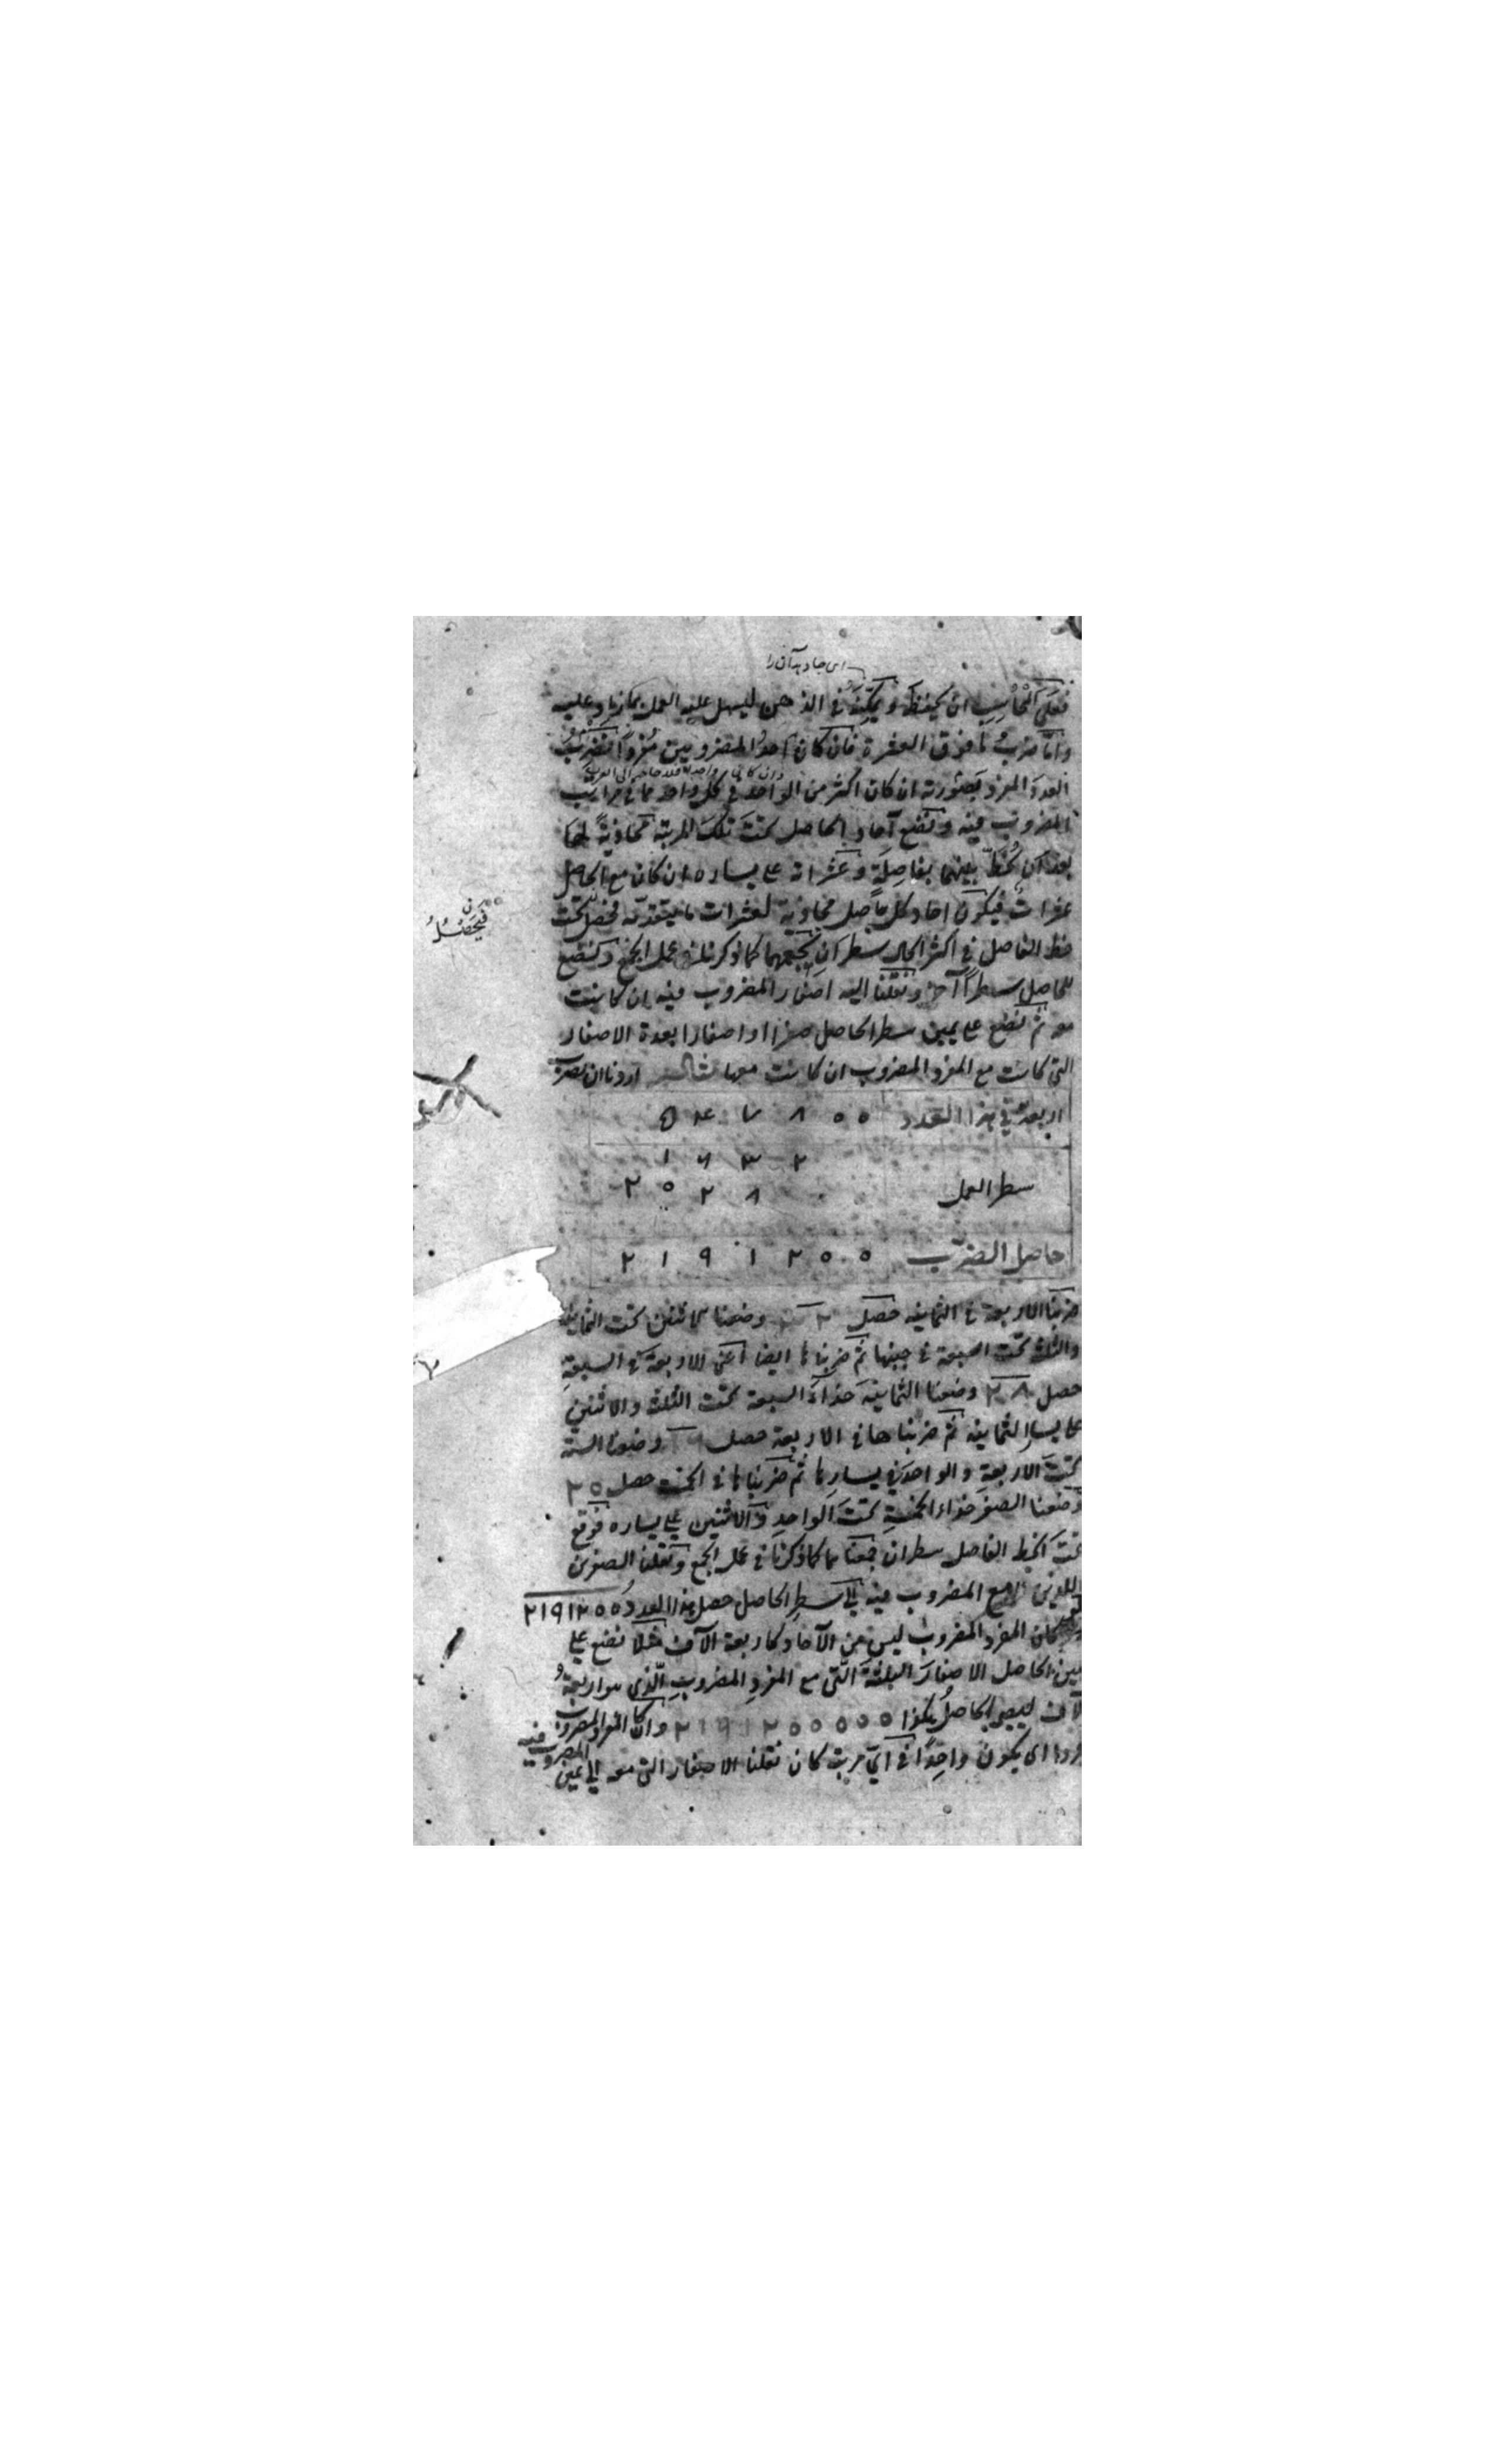 فعلى المحاسب ان يحفظه ويمكنه في الذهن ليسهل عليه العمل بما زاد عليه
واما ضرب ما فوق العشرة فان كان احد المضروبين مفردا نضرب
العدد المفرد بصورته ان كان اكثر من الواحد في كل واحد مما في مراتب
المضروب فيه ونضع آحاد الحاصل تحت تلك المرتبة محاذية لها
بعد ان نخط بينهما بفاصلة وعشراته على يساره ان كان مع الحاصل
عشرات فيكون احاد كل حاصل محاذية لعشرات ما يتقدمه فيحصل تحت
خط الفاصل في اكثر الحال سطران نجمعهما كما ذكرنا في عمل الجمع ونضع
للحاصل سطرا آخر ونقلنا اليه اصفار المضروب فيه ان كانت
معه ثم نضع على يمين سطر الحاصل صفرا او اصفارا بعدة الاصفار
التي كانت مع المفرد المضروب ان كانت معها مثاله اردنا ان نضرب
اربعة في هذا العدد ۵ ۴ ۷ ۸ ۰ ۰
۱ ۶ ۳ ۲
سطر العمل
۲ ۰ ۲ ۸
حاصل الضرب ۲ ۱ ۹ ۱ ۲ ۰ ۰
ضربنا الاربعة في الثمانية حصل وضعنا الاثنين تحت الثمانية
والثلث تحت السبعة في جنبها ثم ضربناها ايضا اعنى الاربعة في السبعة
حصل ۲۸ وضعنا الثمانية حذاء السبعة تحت الثلث والاثنين
على يسار الثمانية ثم ضربناها في الاربعة حصل وضعنا الستة
تحت الاربعة والواحد في يسارها ثم ضربناها في الخمسة حصل ۲۰
وضعنا الصفر حذاء الخمسة تحت الواحد والاثنين على يساره فوقع
تحت الخط الفاصل سطران جمعناهما كما ذكرنا في عمل الجمع ونقلنا الصفرين
اللذين مع المضروب فيه الى سطر الحاصل حصل هذا العدد ۲۱۹۱۲۰۰
كان المفرد المضروب ليس من الآحاد كاربعة الآف مثلا نضع على
يمين الحاصل الاصفار الثلثة التي مع المفرد المضروب الذي هو اربعة
آلاف ليصير الحاصل هكذا ۲۱۹۱۲۰۰۰۰۰ وان كان المفرد المضروب
اى يكون واحدا في اى مرتبة كان نقلنا الاصفار التي معه الى يمين المضروب فيه
فيحصل